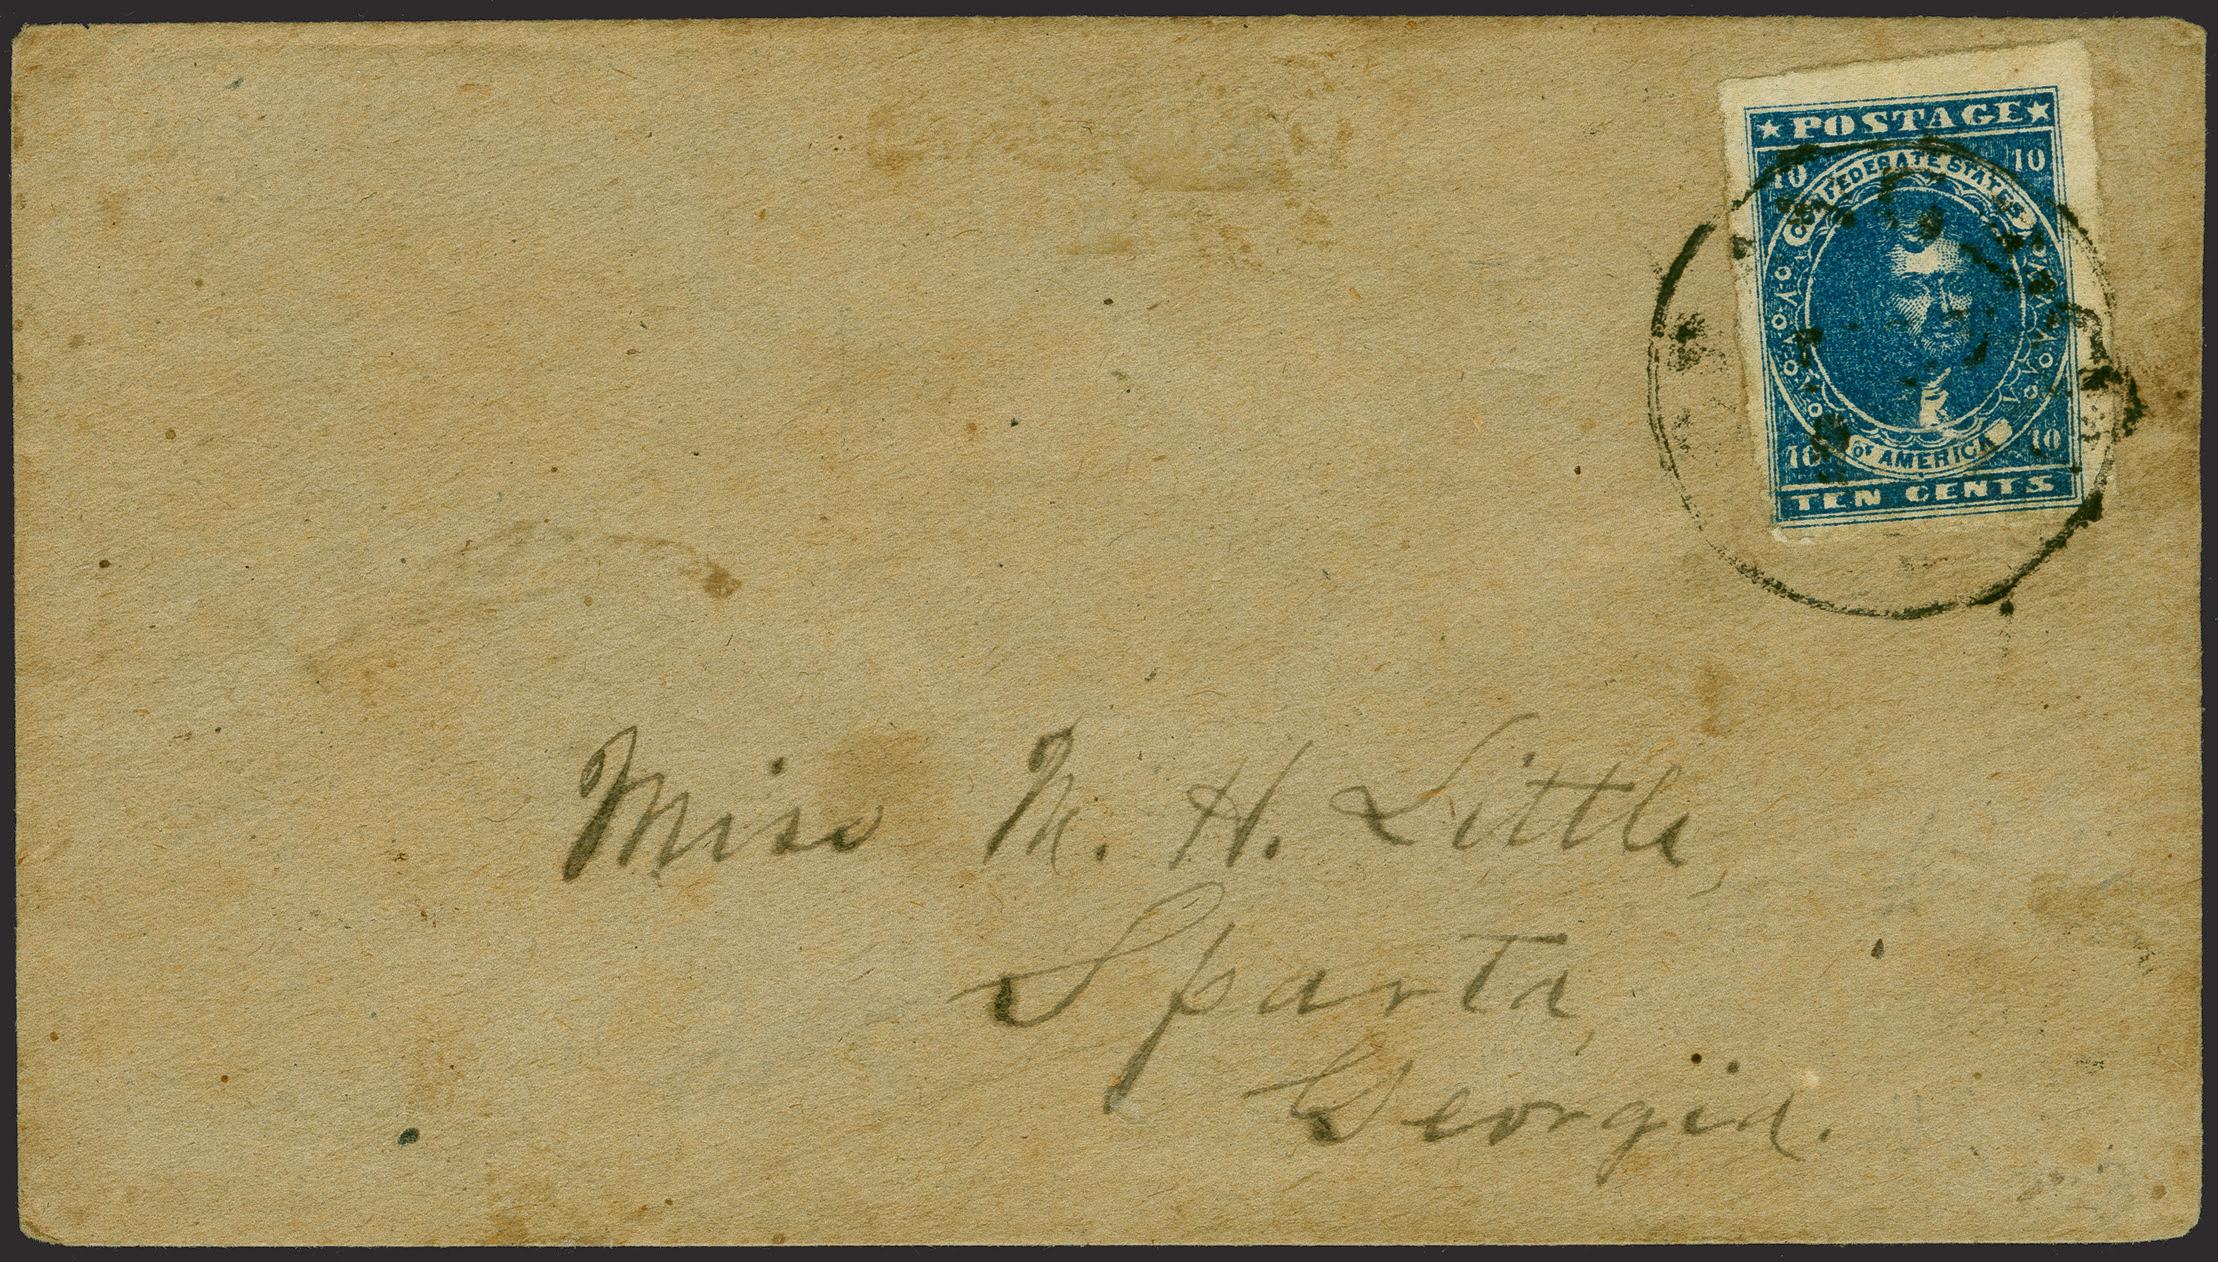 ★ POSTAGE ★
10 10
CONFEDERATE STATES
OF AMERICA
10 10
TEN CENTS
Miss M. H. Little,
Sparta,
Georgia.